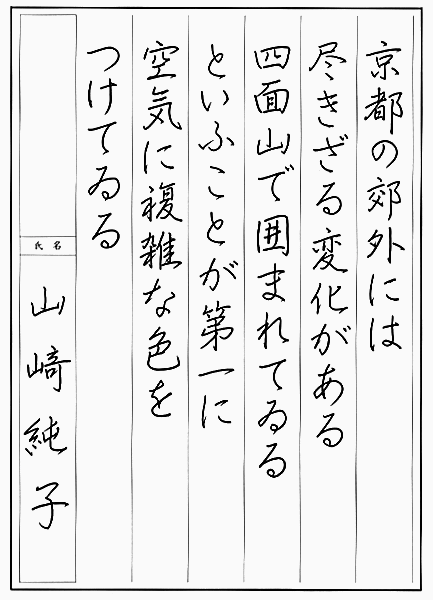 京都の郊外には
尽きざる変化がある
四面山で囲まれてゐる
といふことが第一に
空気に複雑な色を
つけてゐる
氏名
山崎純子